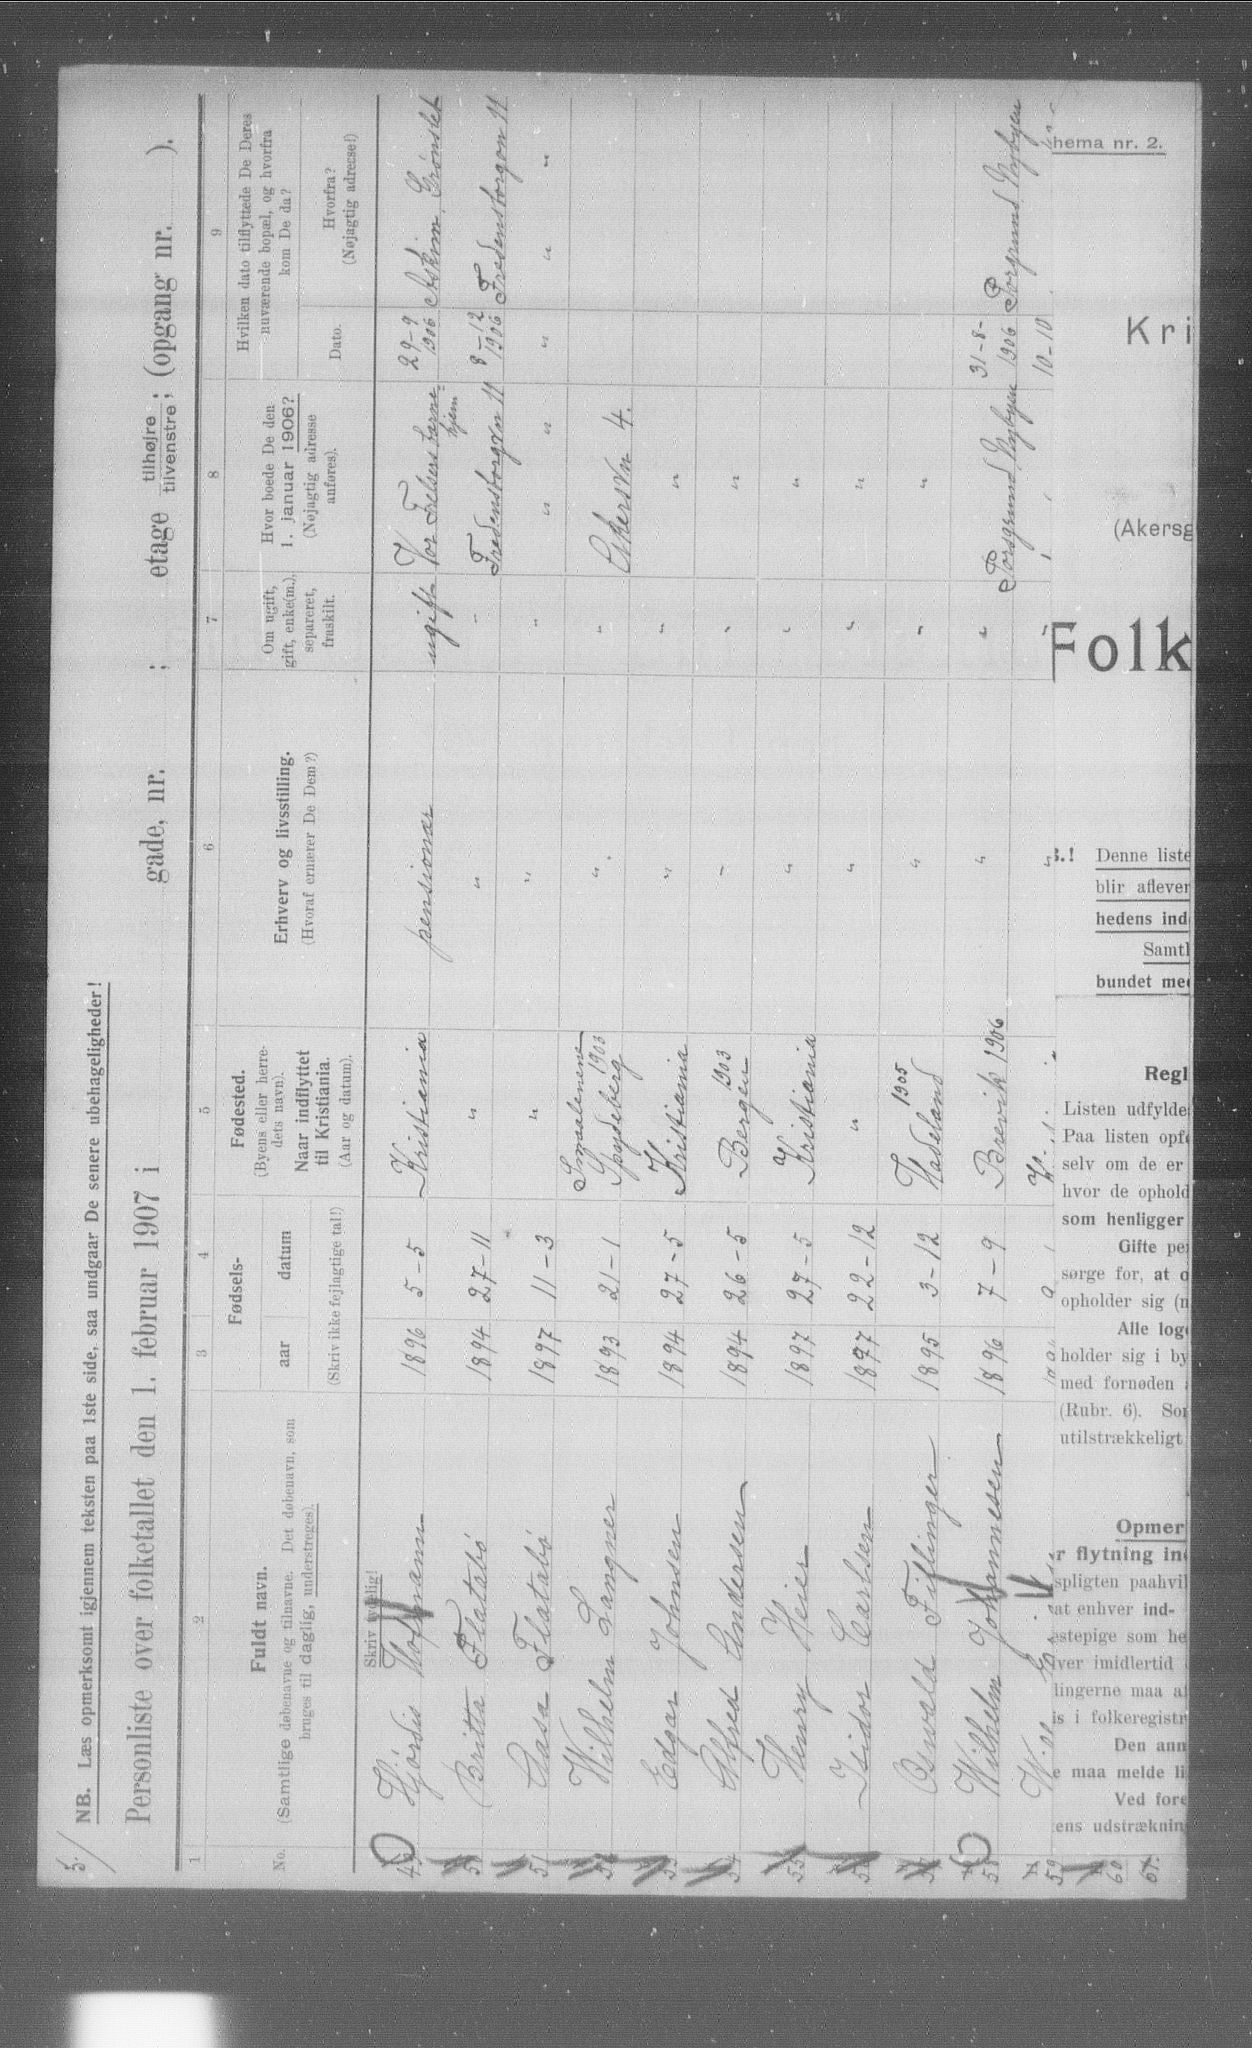 5.
NB. Læs opmerksomt igjennem teksten paa 1ste side, saa undgaar De senere ubehageligheder!
Personliste over folketallet den 1. februar 1907 i gade, nr. ; etage tilhøjre tilvenstre ; (opgang nr. ).
1 2 3 4 5 6 7 8 9
No.
Fuldt navn.
(Samtlige døbenavne og tilnavne. Det døbenavn, som
bruges til daglig, understreges).
Skriv tydelig!
Fødsels-
aar datum
(Skriv ikke fejlagtige tal!)
Fødested.
(Byens eller herre-
dets navn).
Naar indflyttet
til Kristiania.
(Aar og datum).
Erhverv og livsstilling.
(Hvoraf ernærer De Dem?)
Om ugift,
gift, enke(m.),
separeret,
fraskilt.
Hvor boede De den
1. januar 1906?
(Nøjagtig adresse
anføres).
Hvilken dato tilflyttede De Deres
nuværende bopæl, og hvorfra
kom De da?
Dato.
Hvorfra?
(Nøjagtig adresse!)
Hjørdis Hofmann 1896 5-5 Kristiania pensionær ugift Vor Frelsers børnehjem 29-9 1906 Askim, Grønslet
50 Britta Flatabø 1894 27-11 " " - Fredensborgvn 11 8-12 1906 Fredensborgvn 11
51 Aasa Flatabø 1897 11-3 " " " " " " " "
Wilhelm Langner 1893 21-1 Smaalenene Spydeberg 1903 " " Akersvn 4.
Edgar Johnsen 1894 27-5 Kristiania " " "
54 Alfred Andersen 1894 26-5 Bergen 1903 " " "
55 Henry Heier 1897 27-5 Kristiania " " "
Isidor Carlsen 1897 22-12 " " " "
Osvald Fillinger 1895 3-12 Hadeland 1905 " " "
58 Wilhelm Johannesen 1896 7-9 Brevik 1906 " " Porsgrund, Nybyen 31-8-1906 Porsgrund, Nybyen
59 10-10
60
61.
hema nr. 2.
Kri
(Akersg
Folk
B.! Denne liste
blir aflever
hedens ind
Samtl
bundet med
Regl
Listen udfylde
Paa listen opfø
selv om de er
hvor de ophold
som henligger
Gifte pe
sørge for, at o
opholder sig (n
Alle log
holder sig i by
med fornøden
(Rubr. 6). Sor
utilstrækkeligt
Opmer
r flytning in
spligten paahvil
at enhver ind-
estepige som he
ver imidlertid
lingerne maa af
is i folkeregistr
Den ann
e maa melde li
Ved fore
ens udstræknin